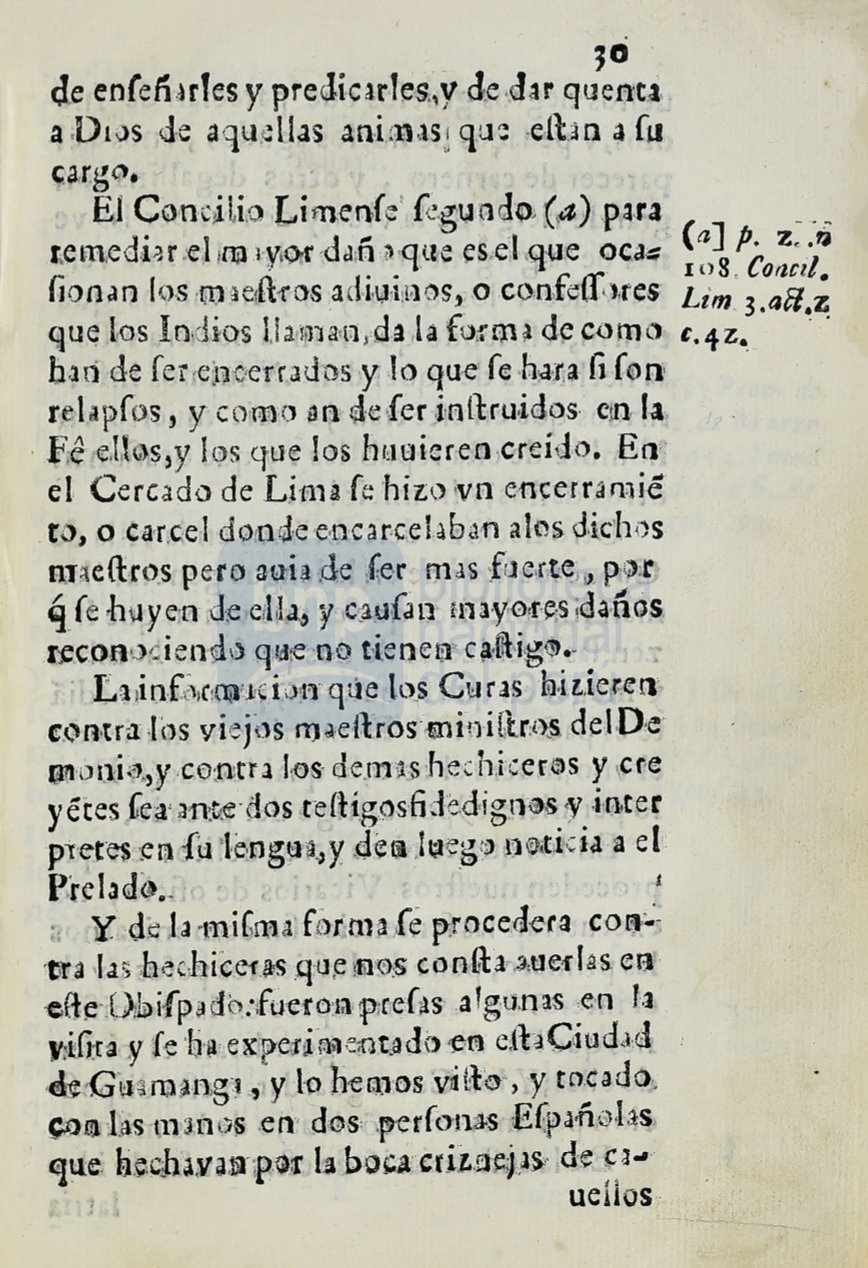 30
de enſeñarles y predicarles, y de dar quenta
a Dios de aquellas animas que eſtan a ſu
cargo.
El Concilio Limenſe ſegundo (a) para
remediar el mayor daño que es el que oca-
ſionan los maeſtros adiuinos, o confeſſores
que los Indios llaman, da la forma de como
han de ſer encerrados y lo que ſe hara ſi ſon
relapſos, y como an de ſer inſtruidos en la
Fê ellos, y los que los huuieren creido. En
el Cercado de Lima ſe hizo vn encerramiẽ
to, o carcel donde encarcelaban alos dichos
maeſtros pero auia de ſer mas fuerte, por
q́ ſe huyen de ella, y cauſan mayores daños
reconociendo que no tienen caſtigo.
La informacion que los Curas hizieren
contra los viejos maeſtros miniſtros del De
monio, y contra los demas hechiceros y cre
yẽtes ſea ante dos teſtigos fidedignos y inter
pretes en ſu lengua, y den luego noticia a el
Prelado.
Y de la miſma forma ſe procedera con-
tra las hechiceras que nos conſta auerlas en
eſte Obiſpado: fueron preſas algunas en la
viſita y ſe ha experimentado en eſta Ciudad
de Guamanga, y lo hemos viſto, y tocado
con las manos en dos perſonas Eſpañolas
que hechavan por la boca criznejas de ca-
uellos
(a] p. 2. .n
108 Concil.
Lim 3. act. 2
c. 42.